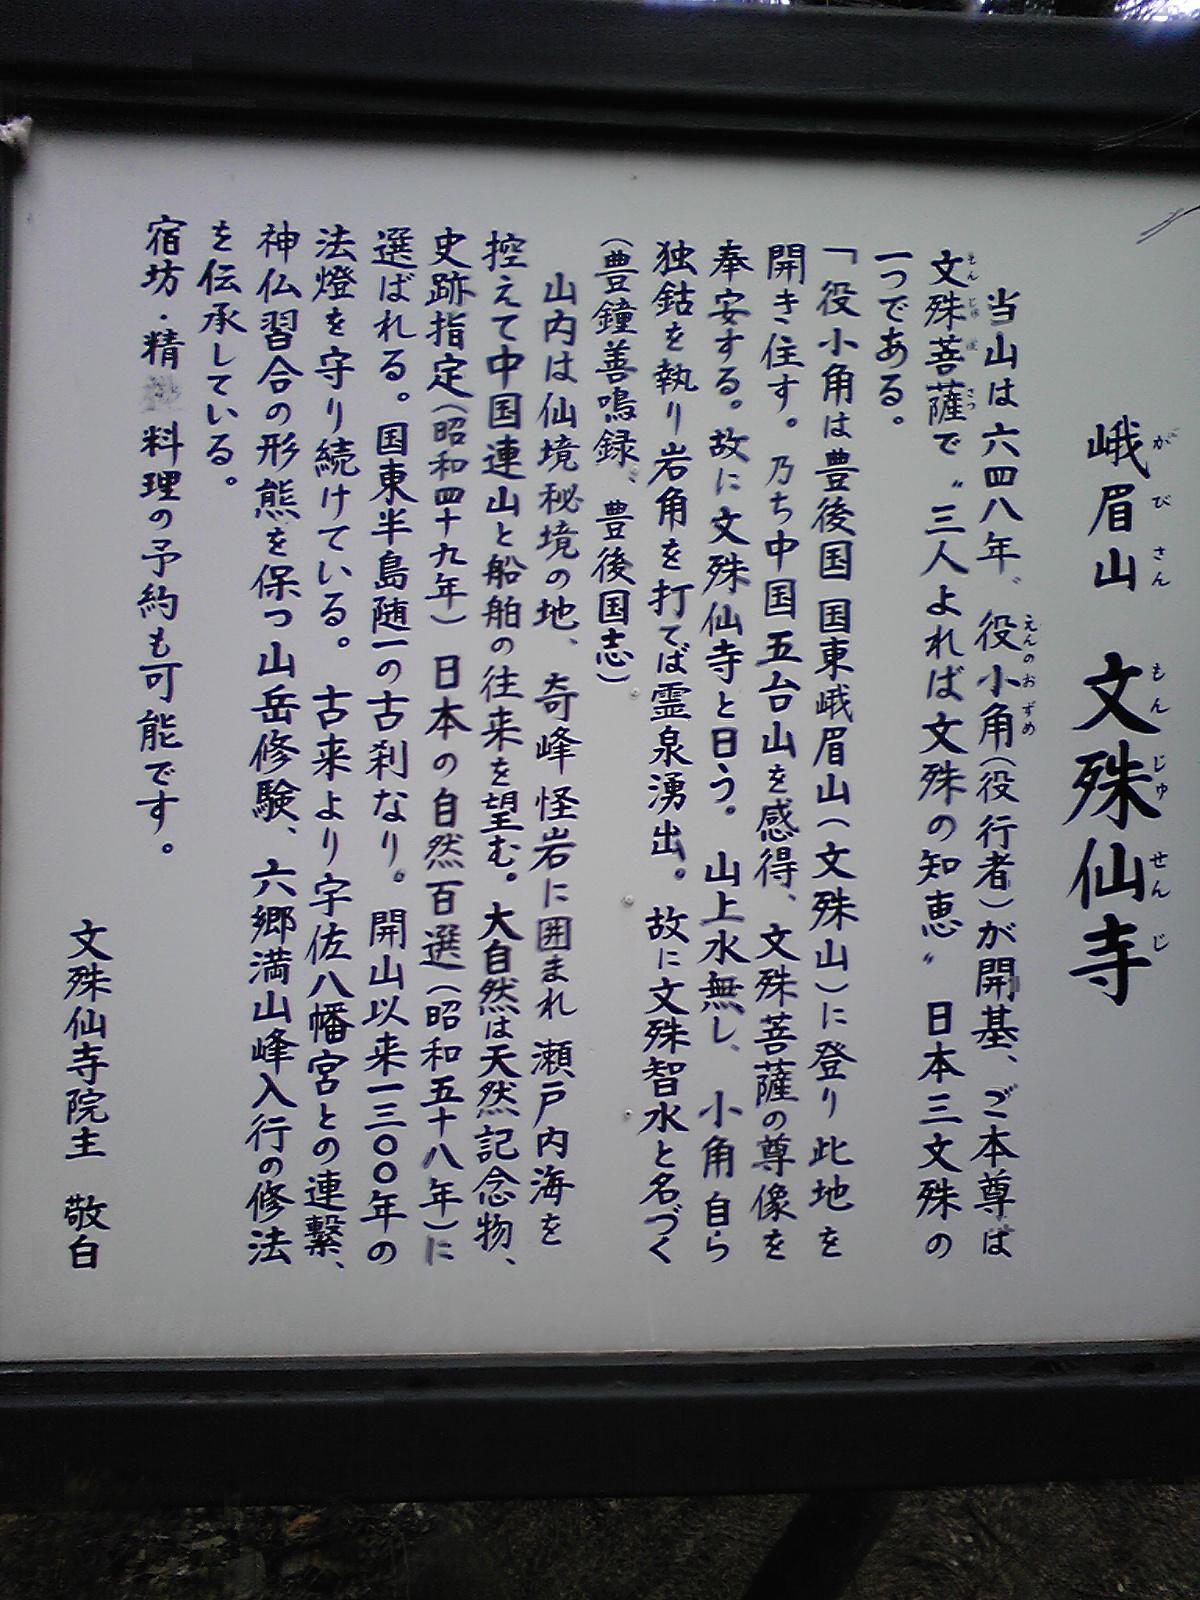 峨眉山 文殊仙寺
がびさん もんじゅせんじ
当山は六四八年、役小角(役行者)が開基、ご本尊は
えんのおずぬ
文殊菩薩で〝三人よれば文殊の知恵〟日本三文殊の
もんじゅぼさつ
一つである。
「役小角は豊後国国東峨眉山(文殊山)に登り此地を
開き住す。乃ち中国五台山を感得、文殊菩薩の尊像を
奉安する。故に文殊仙寺と曰う。山上水無し、小角自ら
独鈷を執り岩角を打てば霊泉湧出。故に文殊智水と名づく
(豊鐘善鳴録、豊後国志)
山内は仙境秘境の地、奇峰怪岩に囲まれ瀬戸内海を
控えて中国連山と船舶の往来を望む。大自然は天然記念物、
史跡指定(昭和四十九年)日本の自然百選(昭和五十八年)に
選ばれる。国東半島随一の古刹なり。開山以来一三〇〇年の
法燈を守り続けている。古来より宇佐八幡宮との連繋、
神仏習合の形態を保つ山岳修験、六郷満山峰入行の修法
を伝承している。
宿坊・精 料理の予約も可能です。
文殊仙寺院主 敬白